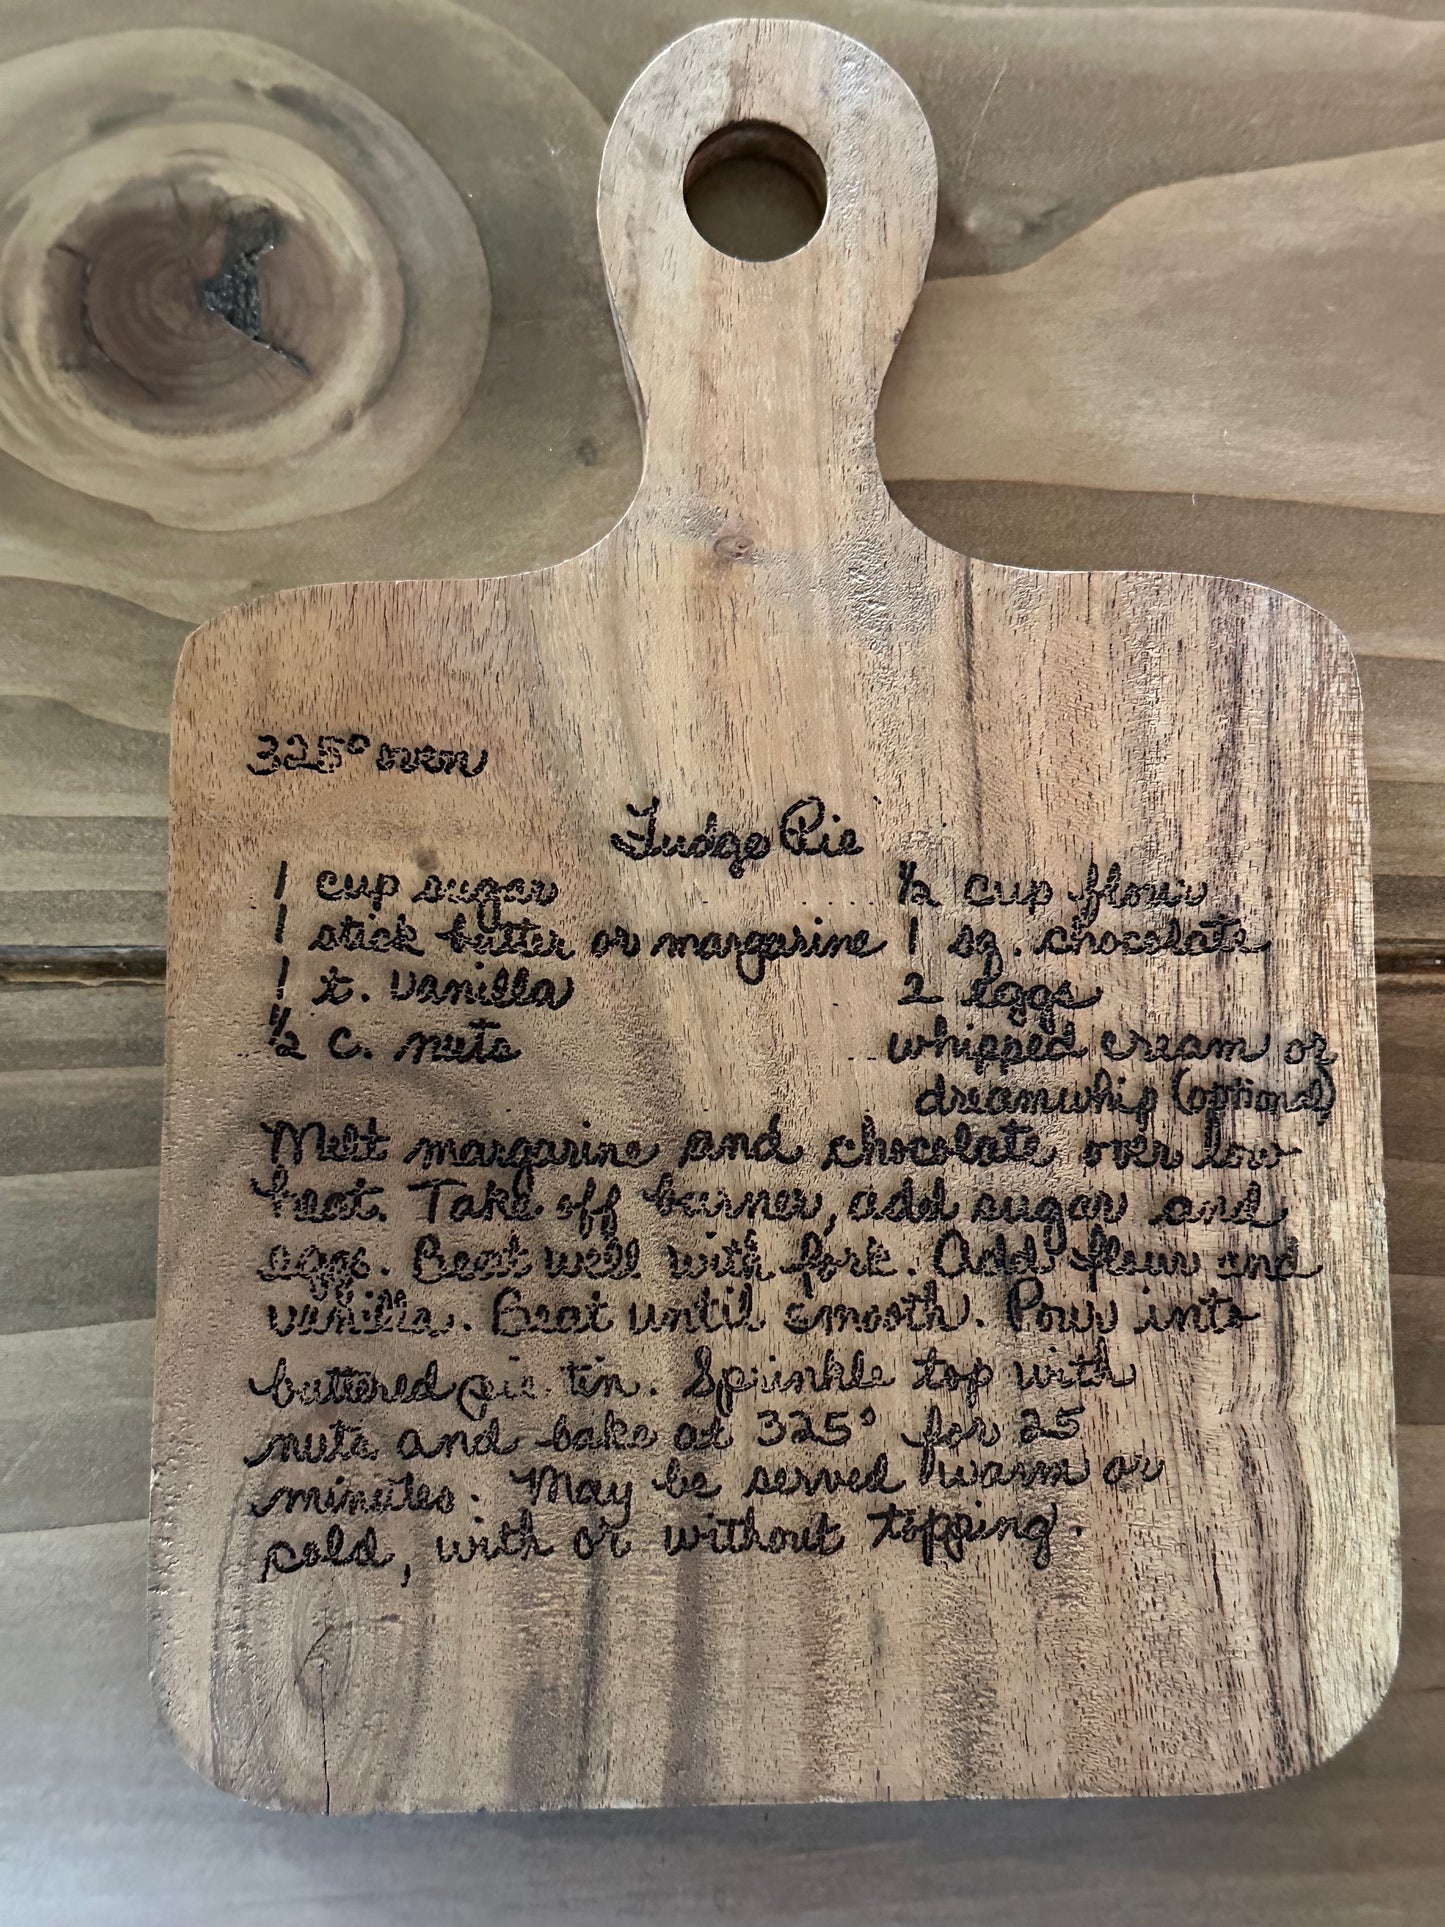 325° oven
Fudge Pie
1 cup sugar ½ cup flour
1 stick butter or margarine 1 sq. chocolate
1 t. vanilla 2 eggs
½ c. nuts whipped cream or
dreamwhip (optional)
Melt margarine and chocolate over low
heat. Take off burner, add sugar and
eggs. Beat well with fork. Add flour and
vanilla. Beat until smooth. Pour into
buttered pie tin. Sprinkle top with
nuts and bake at 325° for 25
minutes. May be served warm or
cold, with or without topping.